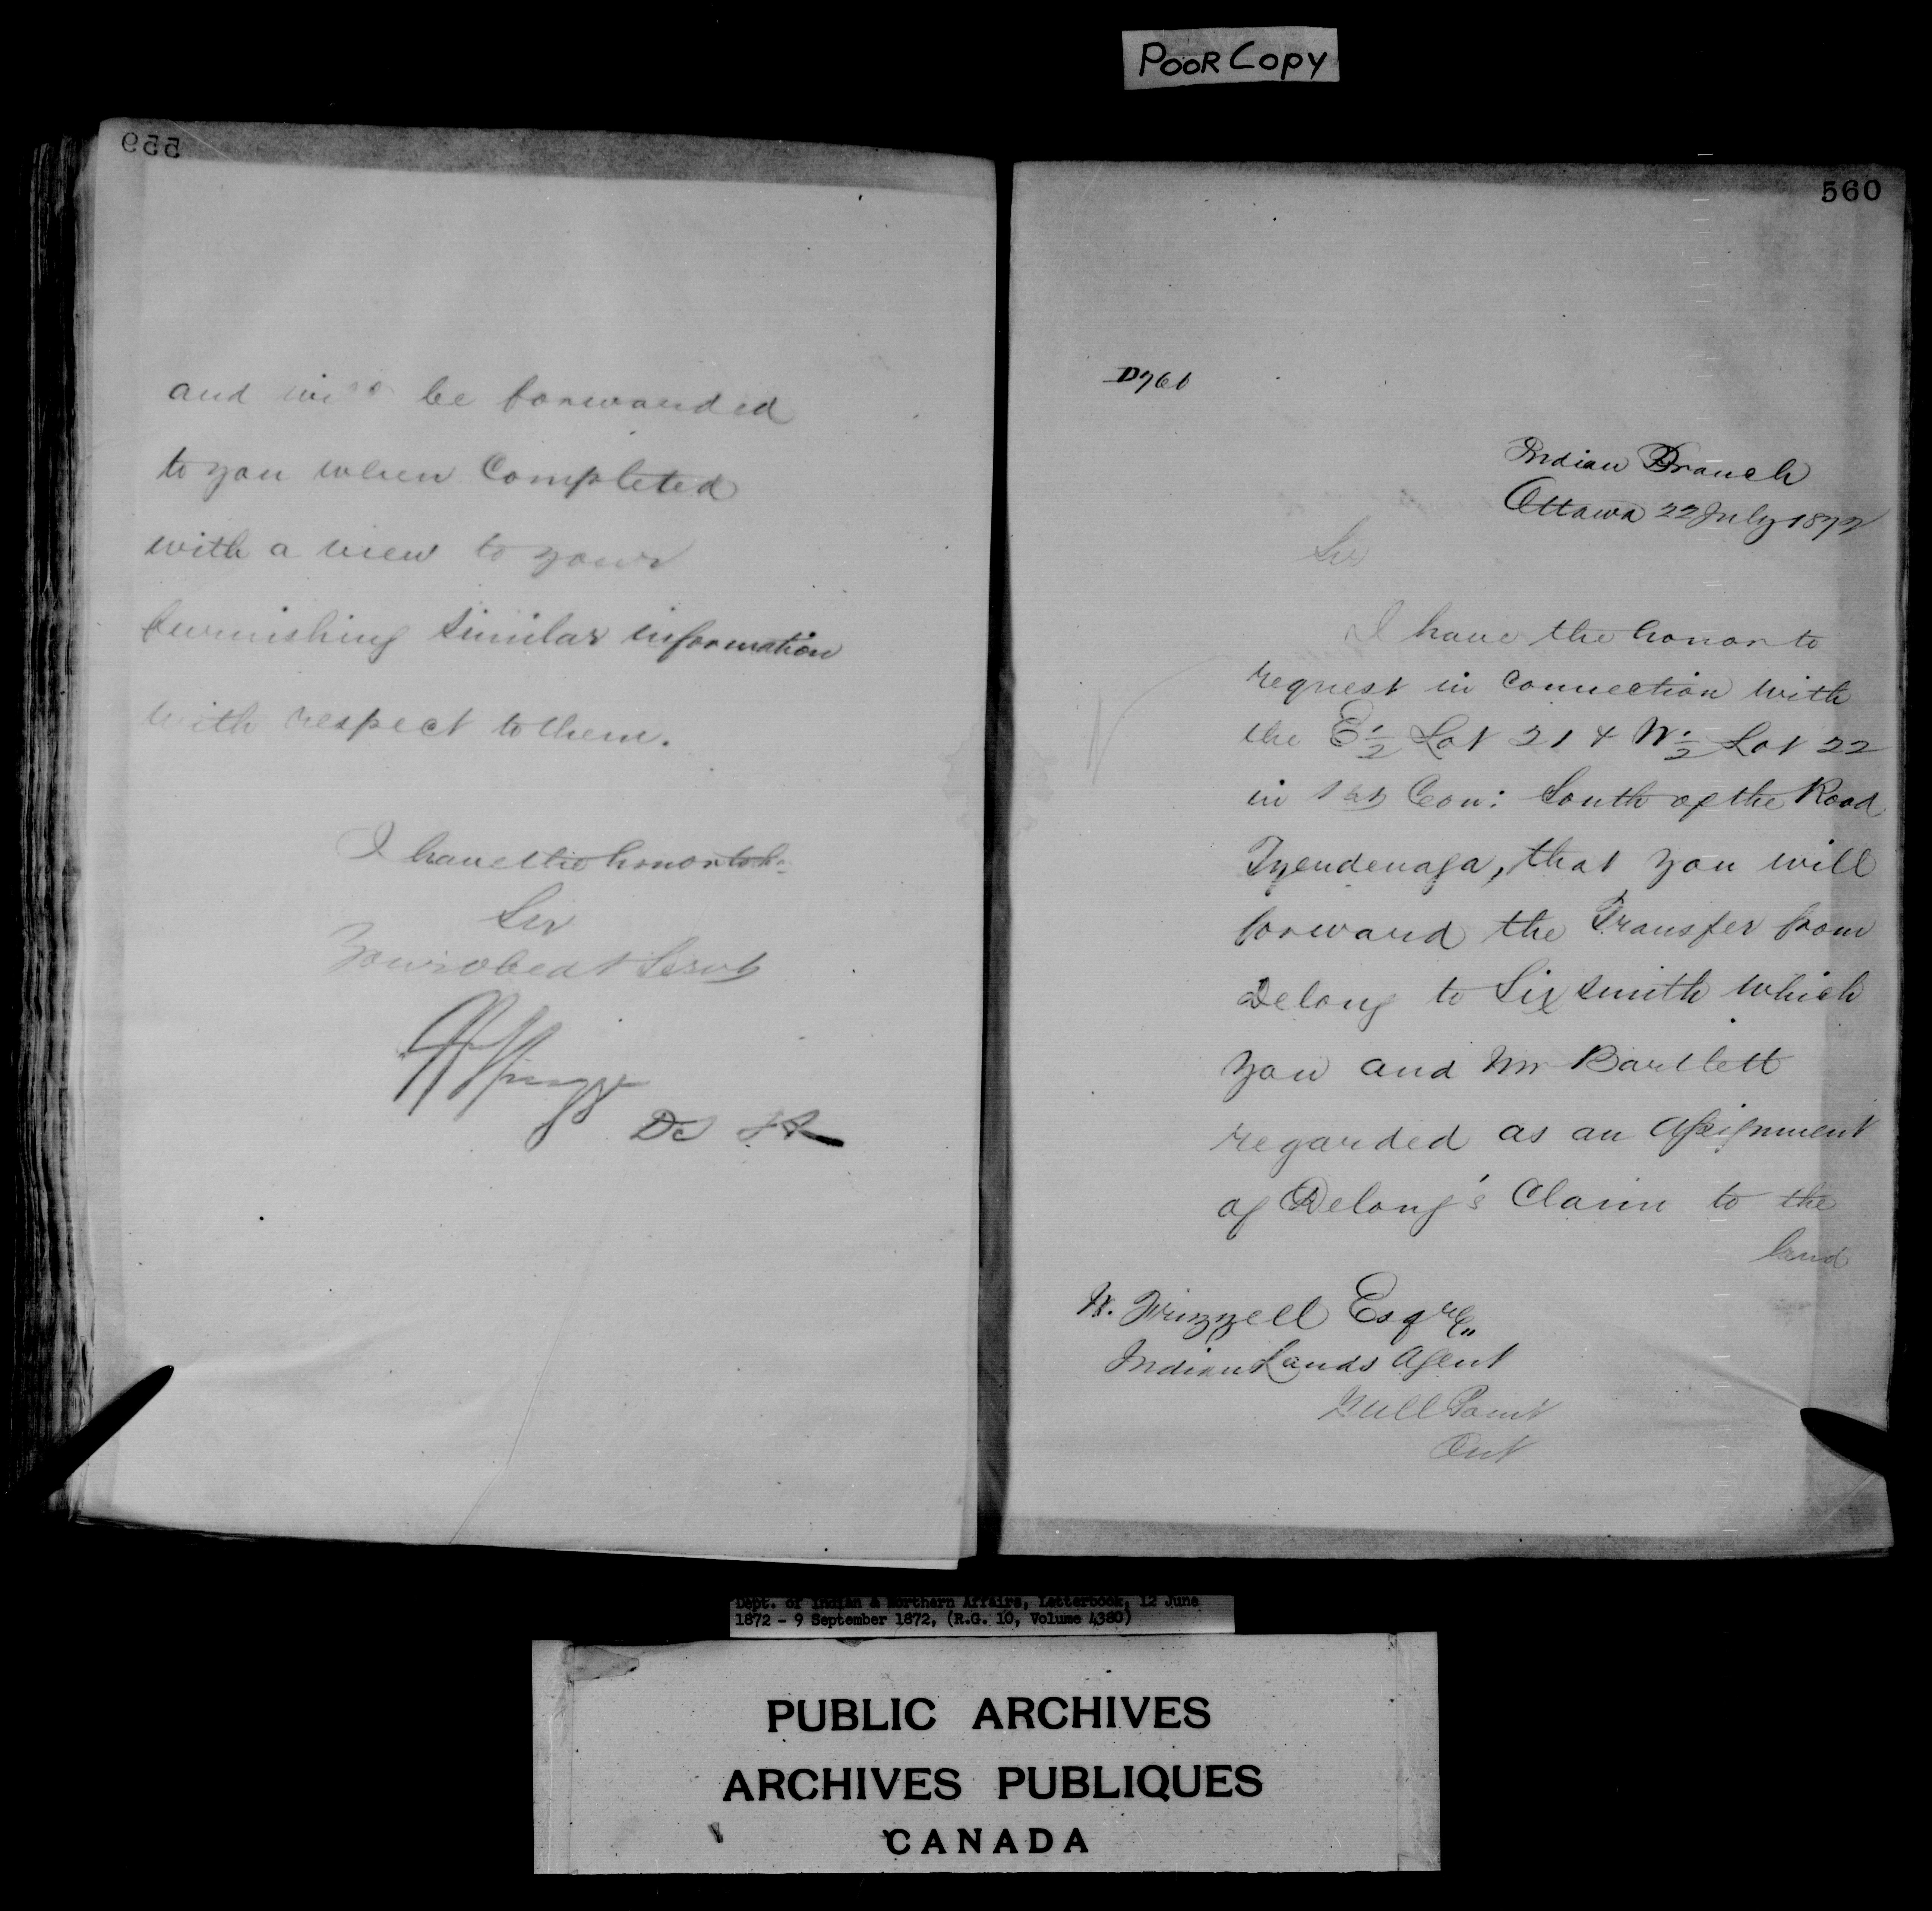 POOR COPY
559
and will be forwarded
to you when Completed
with a view to your
furnishing similar information
with respect to them.
I have the honor to be
Sir
Your obedt Servt
560
D761
Indian Branch
Ottawa 22 July 1872
Sir
I have the honor to
request in connection with
the E 1/2 Lot 21 & W 1/2 Lot 22
in 1st Con: South of the Road
Tyendenaga, that you will
forward the Transfer from
Delong to Sixsmith which
you and Mr Bartlett
regarded as an Assignment
of Delong's Claim to the
land
Esqre
Indian Lands Agent
Mill Point
Ont
Dept. of Indian & Northern Affairs, Letterbook, 12 June
1872 - 9 September 1872, (R.G. 10, Volume 4380)
PUBLIC ARCHIVES
ARCHIVES PUBLIQUES
CANADA